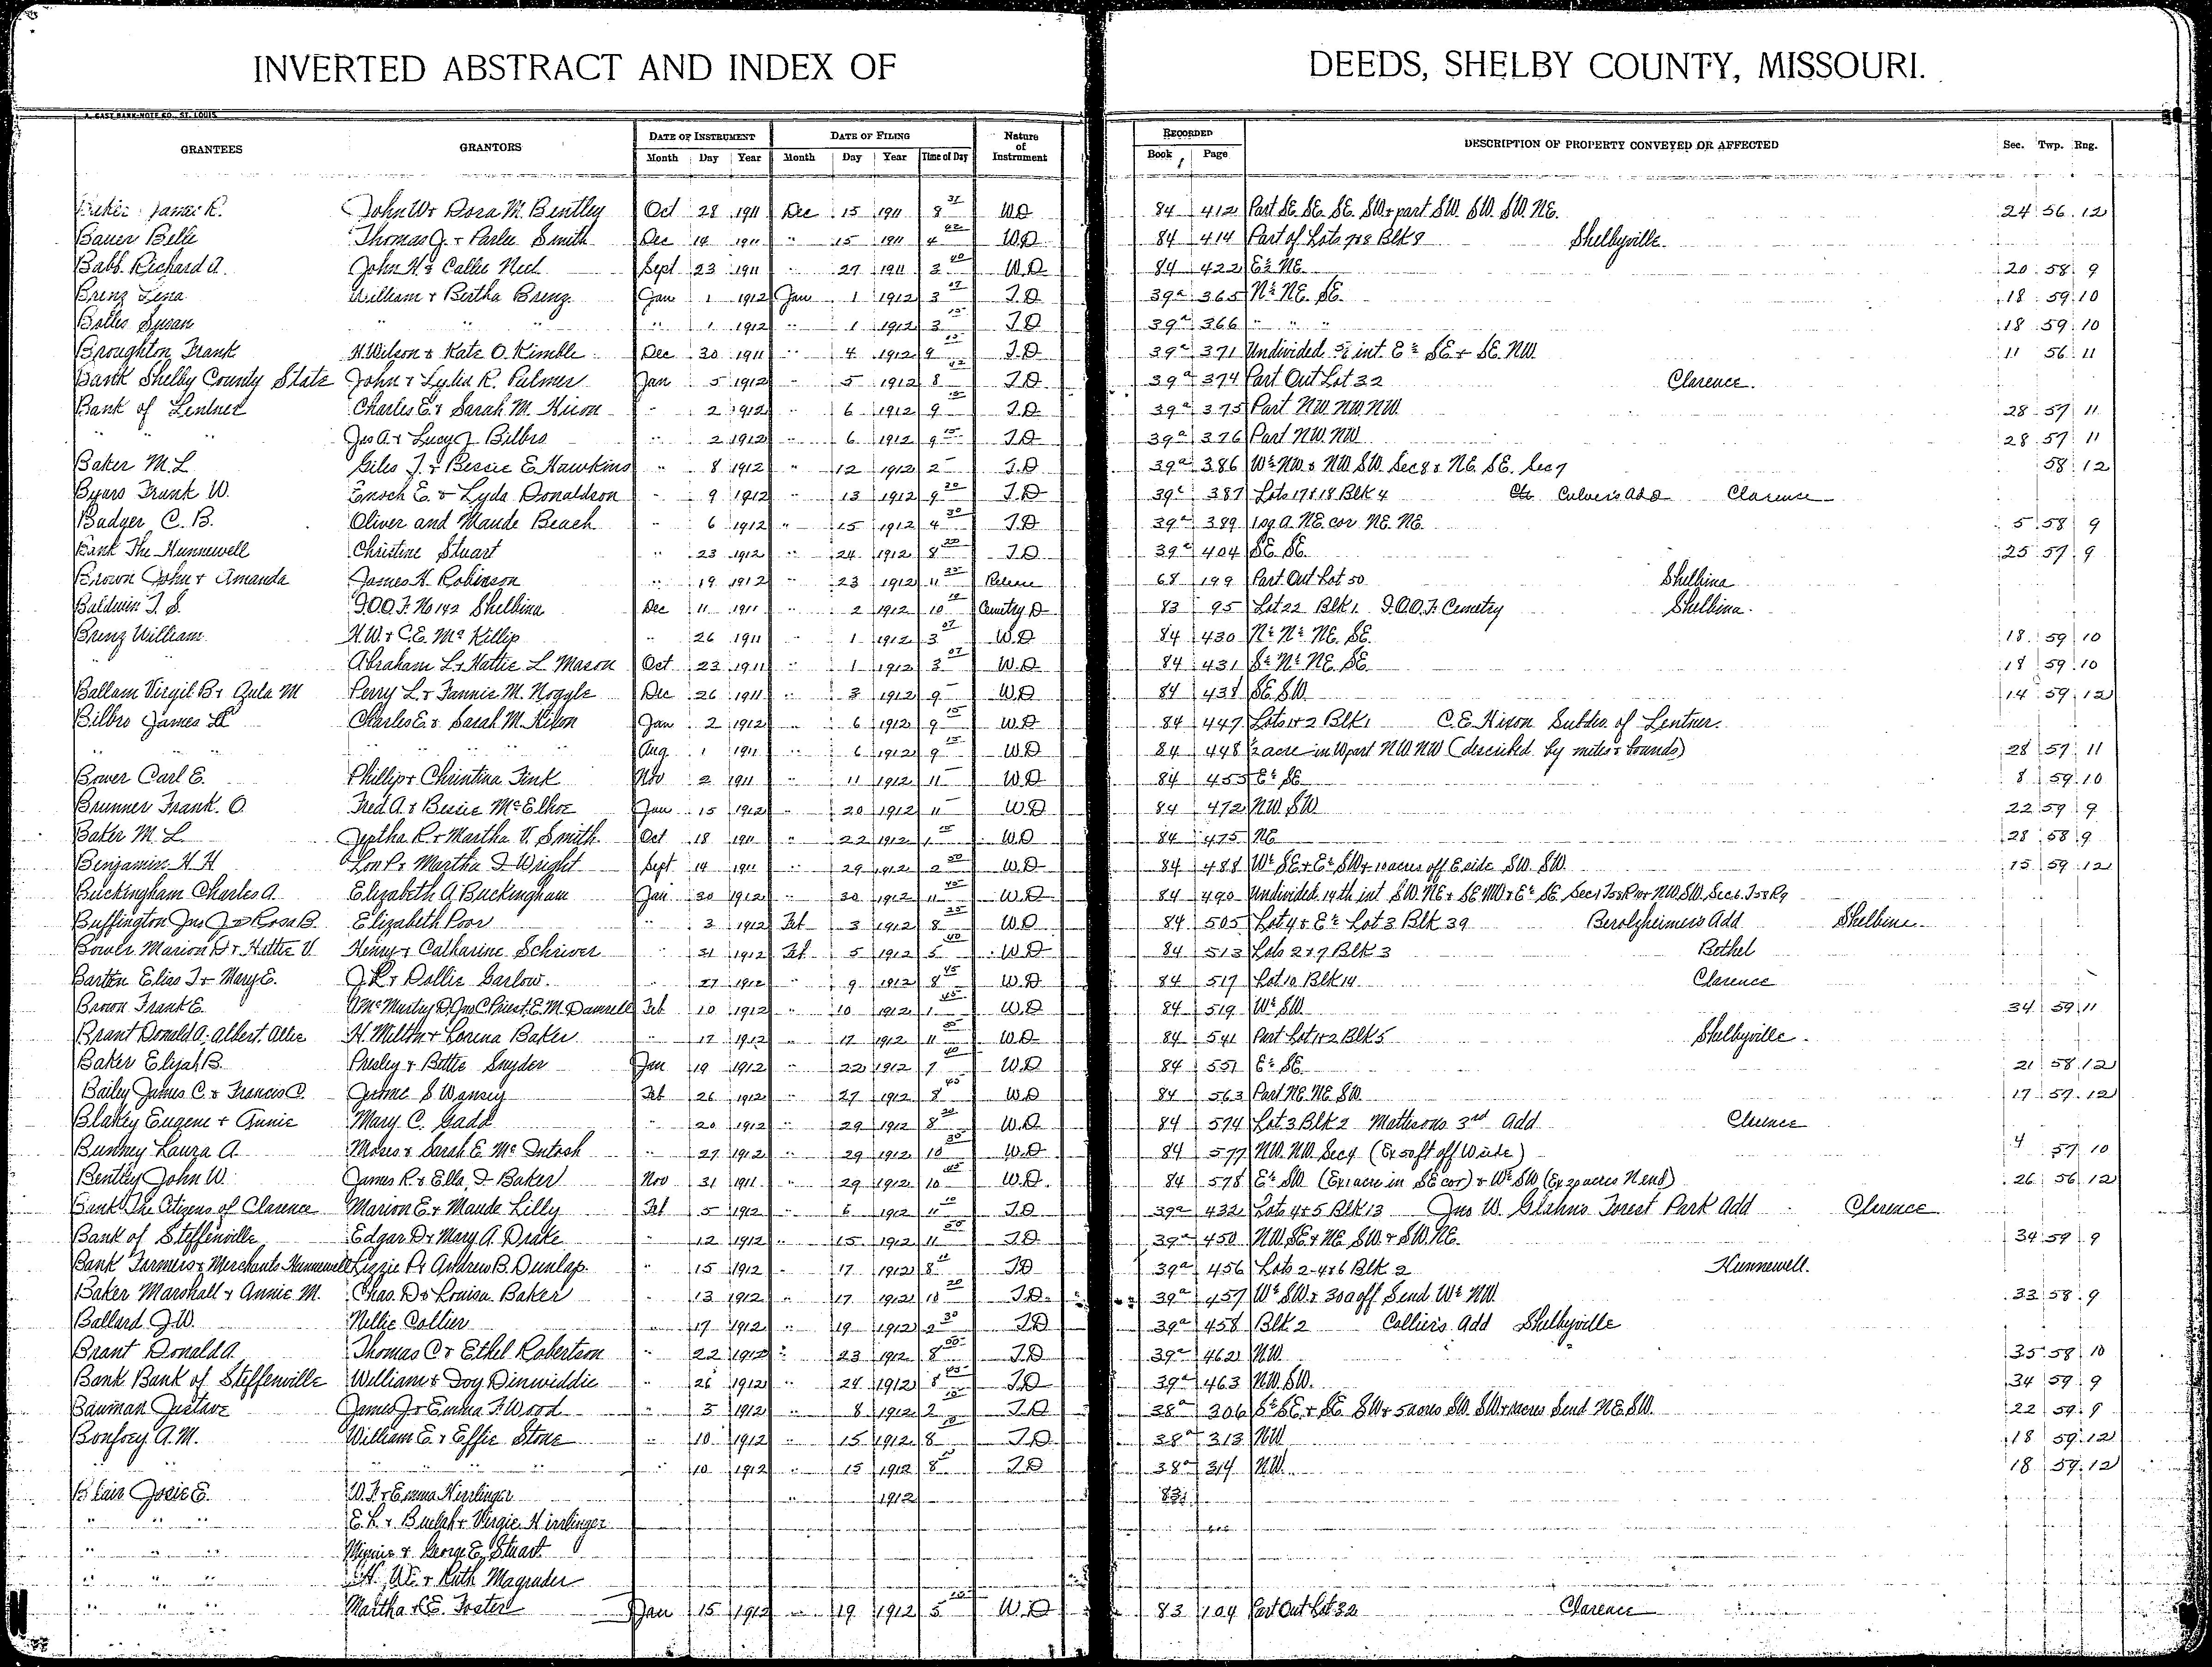 INVERTED ABSTRACT AND INDEX OF DEEDS, SHELBY COUNTY, MISSOURI.
A. GAST BANK-NOTE CO., ST. LOUIS.
GRANTEES GRANTORS DATE OF INSTRUMENT DATE OF FILING Nature of Instrument RECORDED DESCRIPTION OF PROPERTY CONVEYED OR AFFECTED Sec. Twp. Rng.
Month Day Year Month Day Year Time of Day Book Page
James R. John W & Dora M. Bentley Oct 28 1911 Dec 15 1911 8 WD 84 412 Part SE. SE. SE. SW & part SW. SW. SW. NE. 24 56 12
Bauer Belle Thomas J. & Parlee Smith Dec 14 1911 " 15 1911 4 WD 84 414 Part of Lots 7 & 8 Blk 8 Shelbyville.
Babb. Richard A. John H. & Callie Neel Sept 23 1911 " 27 1911 3 W.D 84 422 E½ NE 20 58 9
Brenz Lena William & Bertha Brenz Jan 1 1912 Jan 1 1912 3 T.D 39a 365 N½ NE. SE. 18 59 10
Bolles Susan " " " " 1 1912 " 1 1912 3 T.D 39a 366 " " " 18 59 10
Broughton Frank H. Wilson & Kate O. Kimble Dec 30 1911 " 4 1912 9 T.D 39a 371 Undivided int. E½ SE & SE. NW. 11 56 11
Bank Shelby County State John & Lydia R. Palmer Jan 5 1912 " 5 1912 8 T.D 39a 374 Part Out Lot 32 Clarence.
Bank of Lentner Charles E. & Sarah M. Hixon " 2 1912 " 6 1912 9 T.D 39a 375 Part NW. NW. NW. 28 57 11
" " Jas A. & Lucy J. Bilbro " 2 1912 " 6 1912 9 15 T.D 39a 376 Part NW. NW 28 57 11
Baker M. L. Giles T. & Bessie E. Hawkins " 8 1912 " 12 1912 2 T.D 39a 386 W½ NW & NW. SW. Sec 8 & NE. SE. Sec 7 58 12
Byars Frank W. Enoch E. & Lyda Donaldson " 9 1912 " 13 1912 9 20 T.D 39a 387 Lots 17 & 18 Blk 4 Culver's Add Clarence
Badger, C. B. Oliver and Maude Beach " 6 1912 " 15 1912 4 30 T.D 39a 389 A. NE. cor NE. NE. 5 58 9
Bank The Hunnewell Christine Stuart " 23 1912 " 24 1912 8 20 T.D 39a 404 SE. SE. 25 57 9
Brown John & Amanda James H. Robinson " 19 1912 " 23 1912 11 Release 68 199 Part Out Lot 50 Shelbina
Baldwin T. S. I.O.O.F. No 142 Shelbina Dec 11 1911 " 2 1912 10 Cemetry D 83 95 Lot 22 Blk 1 I.O.O.F. Cemetry Shelbina.
Brenz William H. W. & C. E. McKillip " 26 1911 " 1 1912 3 07 W.D 84 430 N½ N½ NE. SE. 18 59 10
Abraham L. & Hattie L. Mason Oct 23 1911 " 1 1912 3 07 W.D 84 431 S½ N½ NE. SE 18 59 10
Ballam Virgil B & Zula M Perry L. & Fannie M. Noggle Dec 26 1911 " 3 1912 9 W.D 84 438 SE. SW. 14 59 12
Bilbro James A Charles E. & Sarah M. Hixon Jan 2 1912 " 6 1912 9 15 W.D 84 447 Lots 1 & 2 Blk 1 C. E. Hixon Subdiv. of Lentner.
" " " " Aug 1 1911 " 6 1912 9 W.D 84 448 ½ acre in W part NW. NW (described by metes & bounds) 28 57 11
Bower Carl E. Phillip & Christina Fink Nov 2 1911 " 11 1912 11 WD 84 455 E½ SE 8 59 10
Brunner Frank. O. Fred A. & Bessie McElhoe Jan 15 1912 " 20 1912 11 W.D 84 472 NW. SW 22 59 9
Baker M. L. Jeptha R. & Martha V. Smith Oct 18 1911 " 22 1912 1 W.D 84 475 NE 28 58 9
Benjamin H. H Lon P. & Martha J. Wright Sept 14 1911 " 29 1912 2 50 W.D 84 488 W½ SE & E½ SW & 10 acres off E side SW. SW. 15 59 12
Buckingham Charles A. Elizabeth A. Buckingham Jan 30 1912 " 30 1912 11 W.D 84 490 Undivided 1/4th int SW. NE & SE NW & E½ SE Sec 1
Buffington Jas J. & Rosa B. Elizabeth Poor " 3 1912 Feb 3 1912 8 W.D 84 505 Lot 4 & E½ Lot 3 Blk 39 Berolzheimer's Add Shelbina
Bower Marion D & Hattie V. Henry & Catharine Schriver " 31 1912 Feb 5 1912 5 W.D 84 513 Lots 2 & 7 Blk 3 Bethel
Barton Elias T. & Mary E. J. R. & Dollie Garlow. " 27 1912 " 9 1912 8 45 W.D 84 517 Lot 10 Blk 14 Clarence
Brown Frank E. Feb 10 1912 " 10 1912 1 W.D 84 519 W½ SW. 34 59 11
Brant Donald A. Albert. Allie H. Milton & Lorena Baker " 17 1912 " 17 1912 11 W.D 84 541 Part Lot 1 & 2 Blk 5 Shelbyville.
Baker Elijah B. Presley & Bettie Snyder Jan 19 1912 " 22 1912 9 W.D 84 551 E½ SE. 21 58 12
Bailey James C. & Francis C. Jerome S. Wansey Feb 26 1912 " 27 1912 8 W.D 84 563 Part NE. NE. SW. 17 57 12
Blakey Eugene & Annie Mary C. Gadd " 20 1912 " 29 1912 8 W.D 84 574 Lot 3 Blk 2 Matterson's 3rd Add Clarence
Bunney Laura A. Moses & Sarah E. McIntosh " 27 1912 " 29 1912 10 W.D 84 577 NW. NW. Sec 4 (Ex 50 ft off W side) 4 57 10
Bentley John W. James R. & Ella J. Baker Nov 31 1911 " 29 1912 10 W.D. 84 578 E½ SW. (Ex 1 acre in SE cor) & W½ SW (Ex 20 acres N end) 26 56 12
Bank The Citizens of Clarence Marion E. & Maude Lilly Feb 5 1912 " 6 1912 11 T.D 39a 432 Lots 4 & 5 Blk 13 Jno W. Glahn's Forest Park Add Clarence
Bank of Steffenville Edgar D. & Mary A. Drake " 12 1912 " 15 1912 11 T.D 39a 450 NW. SE & NE. SW. & SW. NE. 34 59 9
Bank Farmers & Merchants Hunnewell Lizzie P. & Andrew B. Dunlap. " 15 1912 " 17 1912 8 T.D 39a 456 Lots 2-4 & 6 Blk 2 Hunnewell.
Baker Marshall & Annie M. Chas. D. & Louisa Baker " 13 1912 " 17 1912 10 T.D. 39a 457 W½ SW. & 30 a off S end W½ NW. 33 58 9
Ballard J. W. Nellie Collier " 17 1912 " 19 1912 2 30 T.D 39a 458 Blk 2 Collier's Add Shelbyville
Brant Donald A. Thomas C. & Ethel Robertson " 22 1912 " 23 1912 8 T.D 39a 462 NW. 35 58 10
Bank Bank of Steffenville William & Doy Dinwiddie " 21 1912 " 24 1912 8 T.D 39a 463 NW. SW. 34 59 9
Bauman Gustave James J. & Emma F. Wood " 3 1912 " 8 1912 2 T.D 38a 306 S½ SE. & SE. SW. & 5 acres SW. SW & acres S end NE. SW. 22 59 9
Bonfoey A. M. William E. & Effie Stone " 10 1912 " 15 1912 8 T.D 38a 313 NW. 18 59 12
" " " " " 10 1912 " 15 1912 8 T.D 38a 314 NW. 18 59 12
Blair Josie E. W. F. & Emma Hirrlinger " 1912 83
" " " E. L. & Buelah & Vergie Hirrlinger
" " " Minnie & George E. Stuart
" " " H. W. & Ruth Magruder
" " " Martha & E. Foster Jan 15 1912 " 19 1912 5 W.D 83 104 Part Out Lot 32 Clarence